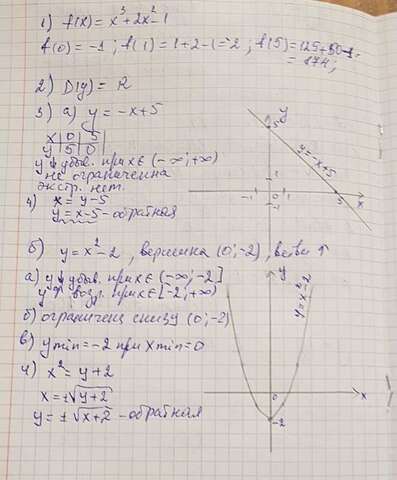 1) f(x) = x³+2x²-1
f(0) = -1; f(1) = 1+2-1=2; f(5)=125+50-1=
= 174;
2) D(y) = R
3) а) y = -x+5
x | 0 | 5
y | 5 | 0
y↓ убыв. при x∈(-∞;+∞)
не ограниченна
экстр. нет.
4) x = y-5
y = x-5 - обратная
y
5
y=-x+5
1
-1 0 1 5 x
-1
б) y = x²-2, вершина (0;-2), ветви ↑
а) y↓ убыв. при x∈(-∞;-2]
y↑ возр. при x∈[-2;+∞)
б) ограничена снизу (0;-2)
в) ymin=-2 при xmin=0
4) x² = y+2
x = ±√y+2
y = ±√x+2 - обратная
y
y=x²-2
0 x
-2